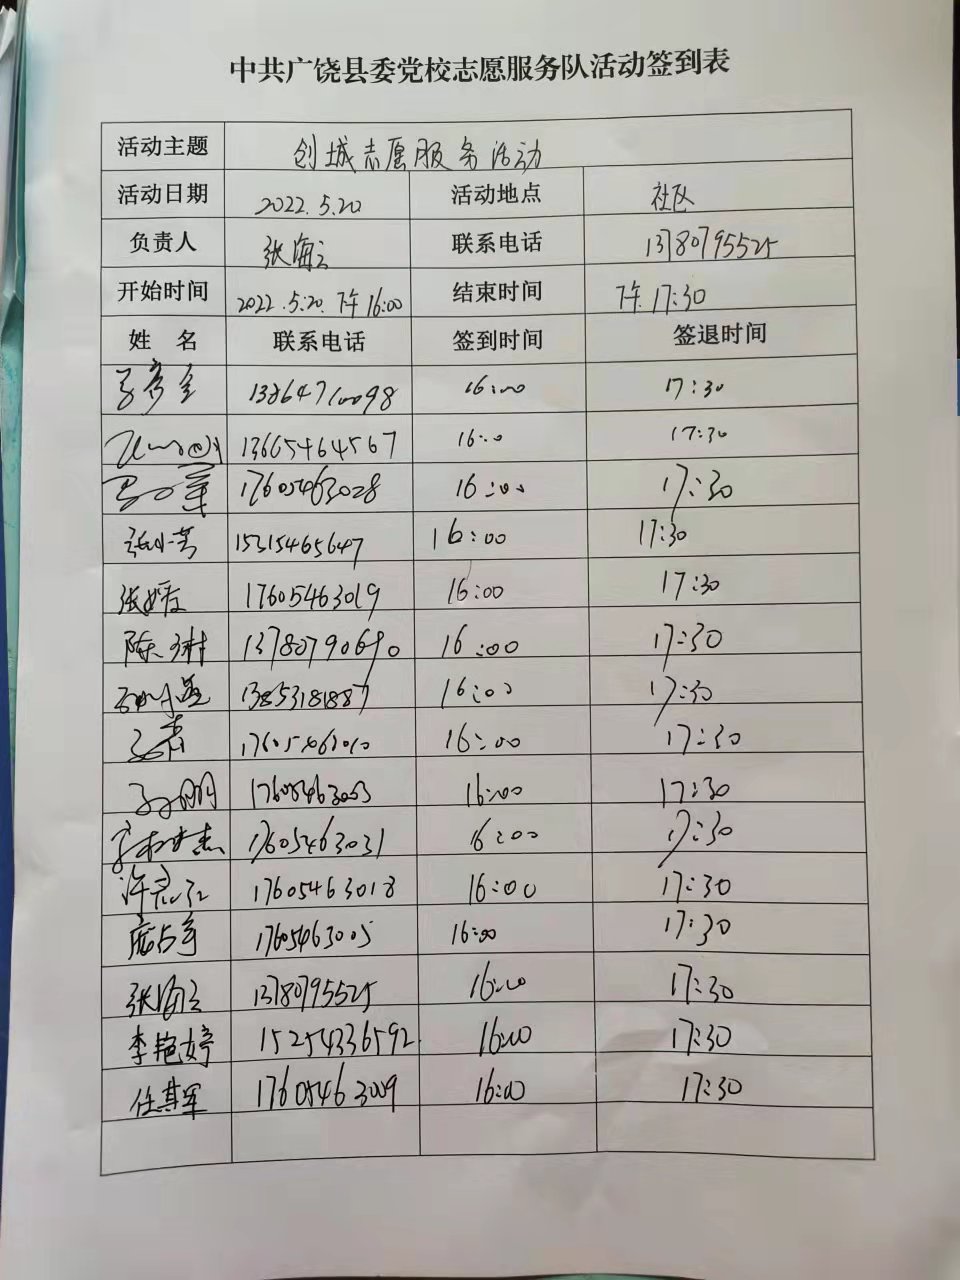 中共广饶县委党校志愿服务队活动签到表
活动主题 创城志愿服务活动
活动日期 2022.5.20 活动地点 社区
负责人 张海云 联系电话 13780795525
开始时间 2022.5.20.下午16:00 结束时间 下午.17:30
姓 名 联系电话 签到时间 签退时间
13864710098 16:00 17:30
13665464567 16:00 17:30
17605463028 16:00 17:30
张小芳 15315465647 16:00 17:30
张婷 17605463019 16:00 17:30
陈琳 13780790690 16:00 17:30
13853181887 16:00 17:30
16:00 17:30
孙明 17605463003 16:00 17:30
17605463031 16:00 17:30
许志红 17605463018 16:00 17:30
17605463005 16:00 17:30
张海云 13780795525 16:00 17:30
李艳婷 15254336592 16:00 17:30
任其军 17605463009 16:00 17:30